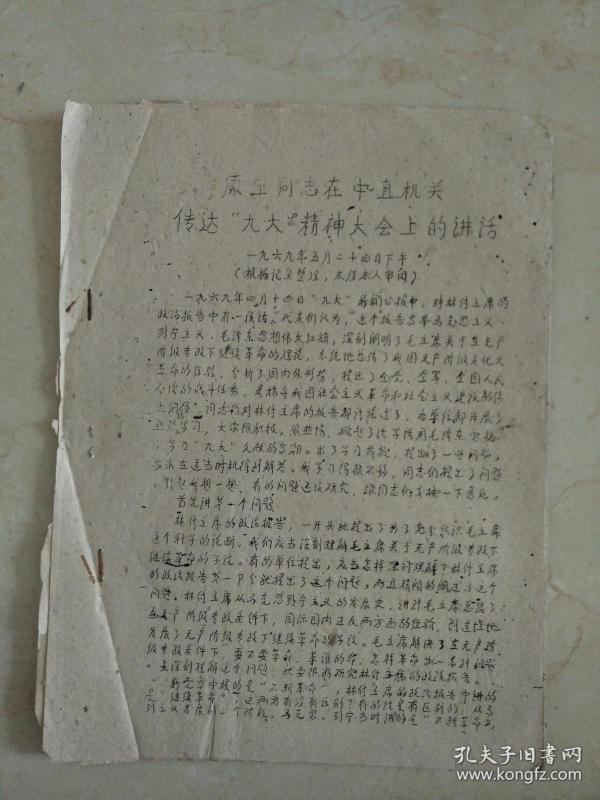 康生同志在中直机关
传达“九大”精神大会上的讲话
一九六九年五月二十四日下午
(根据记录整理,未经本人审阅)
一九六九年四月十四日“九大”新闻公报中,对林付主席的
政治报告中有一段话:“代表们认为,这个报告高举马克思主义、
列宁主义、毛泽东思想伟大红旗,深刻阐明了毛主席关于在无产
阶级专政下继续革命的理论,系统地总结了我国无产阶级文化大
革命的经验,分析了国内外形势,提出了全党、全军、全国人民
今后的战斗任务,是指导我国社会主义革命和社会主义建设的伟
大纲领”同志们对林付主席的报告都讨论过了,各单位都开展了
学习,大家很积极。很热情,掀起了活学活用毛泽东思想,
学习“九大”文献的高潮。出了学习简报,提出了一些问题,
要求在这当时机得到解答。我学习得很不够,同志们提出了问题
引起我想一想,有的问题还没研究,跟同志们交换一下意见。
首先讲第一个问题
林付主席的政治报告,一开头就提出了为了完全认识毛主席
这个科学的论断,我们应当深刻理解毛主席关于无产阶级专政下
继续革命的学说。有的单位提出,应当怎样深刻理解?林付主席
的政治报告第一节就提出了这个问题,而且精辟的阐述了这个
问题。林付主席从马克思列宁主义的发展史,讲到毛主席总结了
在无产阶级专政条件下,国际国内正反两方面的经验,创造性地
发展了无产阶级专政下继续革命的学说。毛主席解决了在无产阶
级专政条件下,要不要革命,革谁的命,怎样革命的一系列问题。
要深刻理解这个问题,就要很好研究林付主席的政治报告。
新党章中提的是“不断革命”,林付主席的政治报告中讲的
是“继续革命”,这两者有没有区别?有的说是有区别的,从马
列主义发展的一个阶段,马克思、列宁当时讲的是“不断革命”
孔夫子旧书网
www.kongfz.com